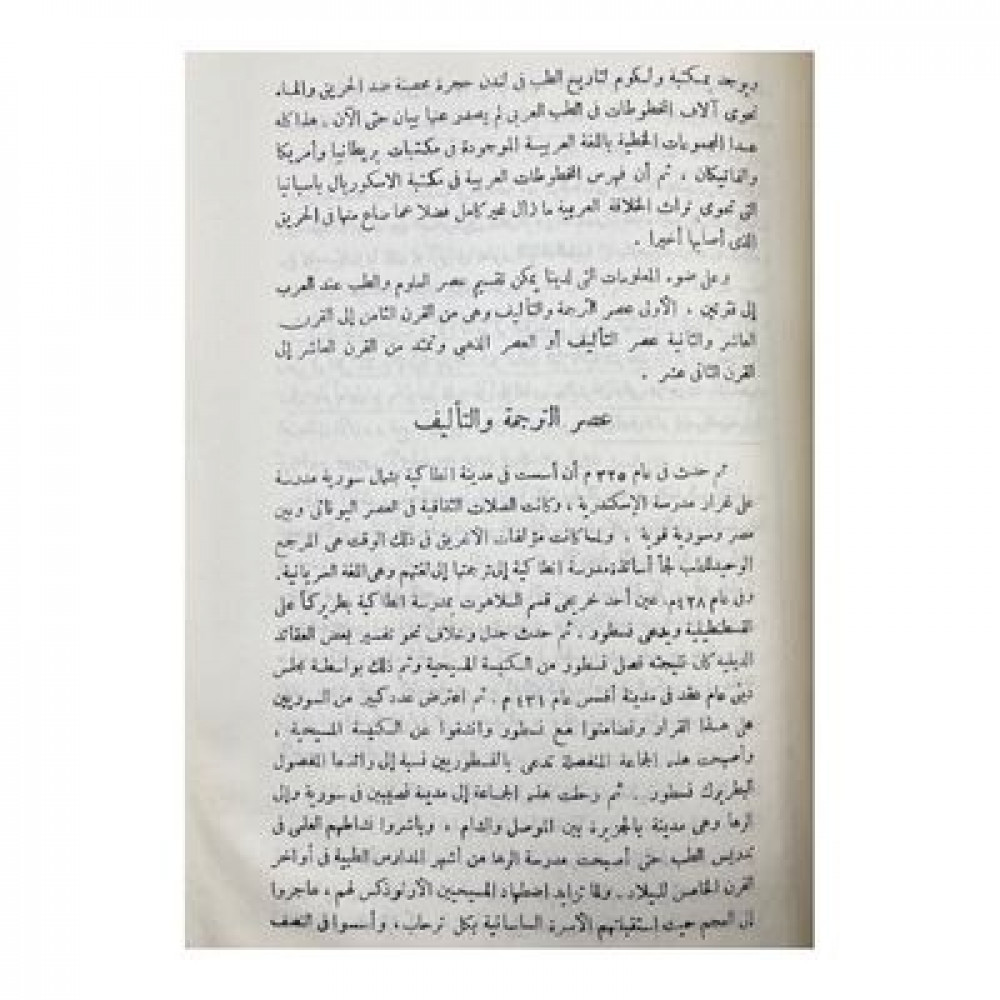 ويوجد بمكتبة ولكوم لتاريخ الطب فى لندن حجرة محصنة ضد الحريق والماء
تحوى آلاف المخطوطات فى الطب العربى لم يصدر عنها بيان حتى الآن . هذا كله
عدا المجموعات الخطية باللغة العربية الموجودة فى مكتبات بريطانيا وأمريكا
والفاتيكان ، ثم أن فهرس المخطوطات العربية فى مكتبة الاسكوريال باسبانيا
التى تحوى تراث الخلافة العربية ما زال غير كامل فضلا عما ضاع منها فى الحريق
الذى أصابها أخيرا .
وعلى ضوء المعلومات التى لدينا يمكن تقسيم عصر العلوم والطب عند العرب
إلى فترتين ، الأولى عصر الترجمة والتأليف وهى من القرن الثامن إلى القرن
العاشر والثانية عصر التأليف أو العصر الذهبى وتمتد من القرن العاشر إلى
القرن الثانى عشر .
عصر الترجمة والتأليف
ثم حدث فى عام ٣٢٥ م أن أسست فى مدينة انطاكية بشمال سورية مدرسة
على غرار مدرسة الإسكندرية ، وكانت الصلات الثقافية فى العصر اليونانى وبين
مصر وسورية قوية ، ولما كانت مؤلفات الأغريق فى ذلك الوقت هى المرجع
الوحيد للطب لجأ أساتذة مدرسة انطاكية إلى ترجمتها إلى لغتهم وهى اللغة السريانية.
وفى عام ٤٣٨م. عين أحد خريجى قسم اللاهوت بمدرسة انطاكية بطريركاً على
القسطنطينية ويدعى نسطور . ثم حدث جدل وخلاف نحو تفسير بعض العقائد
الدينية كان نتيجته فصل نسطور من الكنيسة المسيحية وتم ذلك بواسطة مجلس
دينى عام عقد فى مدينة أفسس عام ٤٣١ م . ثم اعترض عدد كبير من السوريين
على هذا القرار وتضامنوا مع نسطور وانشقوا عن الكنيسة المسيحية ،
وأصبحت هذه الجماعة المنفصلة تدعى بالنسطوريين نسبة إلى رائدها المفصول
البطريرك نسطور . ثم رحلت هذه الجماعة إلى مدينة نصيبين فى سورية وإلى
الرها وهى مدينة بالجزيرة بين الموصل والشام ، وباشروا نشاطهم العلمى فى
تدريس الطب حتى أصبحت مدرسة الرها من أشهر المدارس الطبية فى أواخر
القرن الخامس للميلاد . ولما تزايد إضطهاد المسيحيين الأرثوذكس لهم ، هاجروا
إلى العجم حيث استقبلتهم الأسرة الساسانية بكل ترحاب ، وأسسوا فى النصف